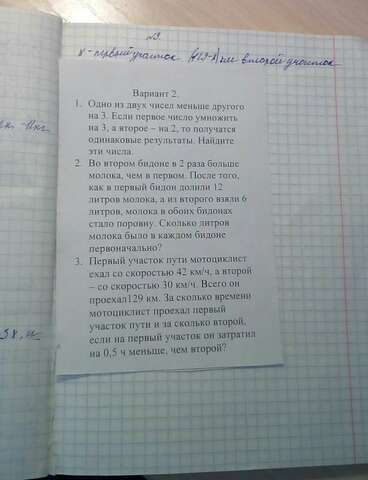 №3
x - первый участок (129-x)км второй участок
Вариант 2.
1. Одно из двух чисел меньше другого
на 3. Если первое число умножить
на 3, а второе – на 2, то получатся
одинаковые результаты. Найдите
эти числа.
2. Во втором бидоне в 2 раза больше
молока, чем в первом. После того,
как в первый бидон долили 12
литров молока, а из второго взяли 6
литров, молока в обоих бидонах
стало поровну. Сколько литров
молока было в каждом бидоне
первоначально?
3. Первый участок пути мотоциклист
ехал со скоростью 42 км/ч, а второй
– со скоростью 30 км/ч. Всего он
проехал129 км. За сколько времени
мотоциклист проехал первый
участок пути и за сколько второй,
если на первый участок он затратил
на 0,5 ч меньше, чем второй?